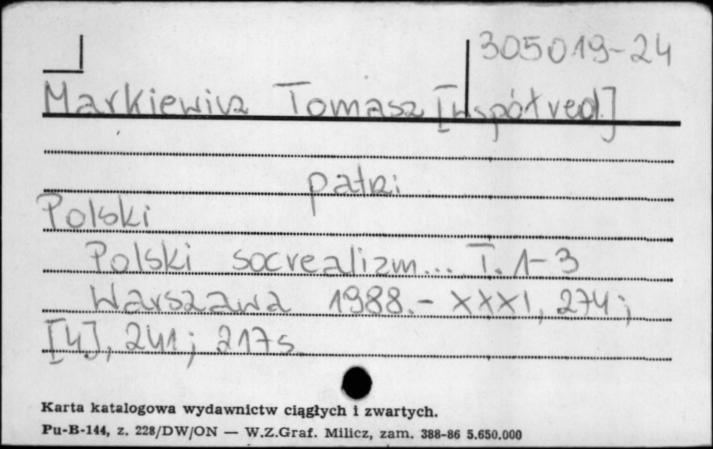 305019-24
Markiewicz Tomasz [współred.]
patrz:
Polski
Polski socrealizm... T. 1-3
Warszawa 1988.- XXXI, 274;
[4], 241; 217 s.
Karta katalogowa wydawnictw ciągłych i zwartych.
Pu-B-144, z. 228/DW/ON — W.Z.Graf. Milicz, zam. 388-86 5.650.000